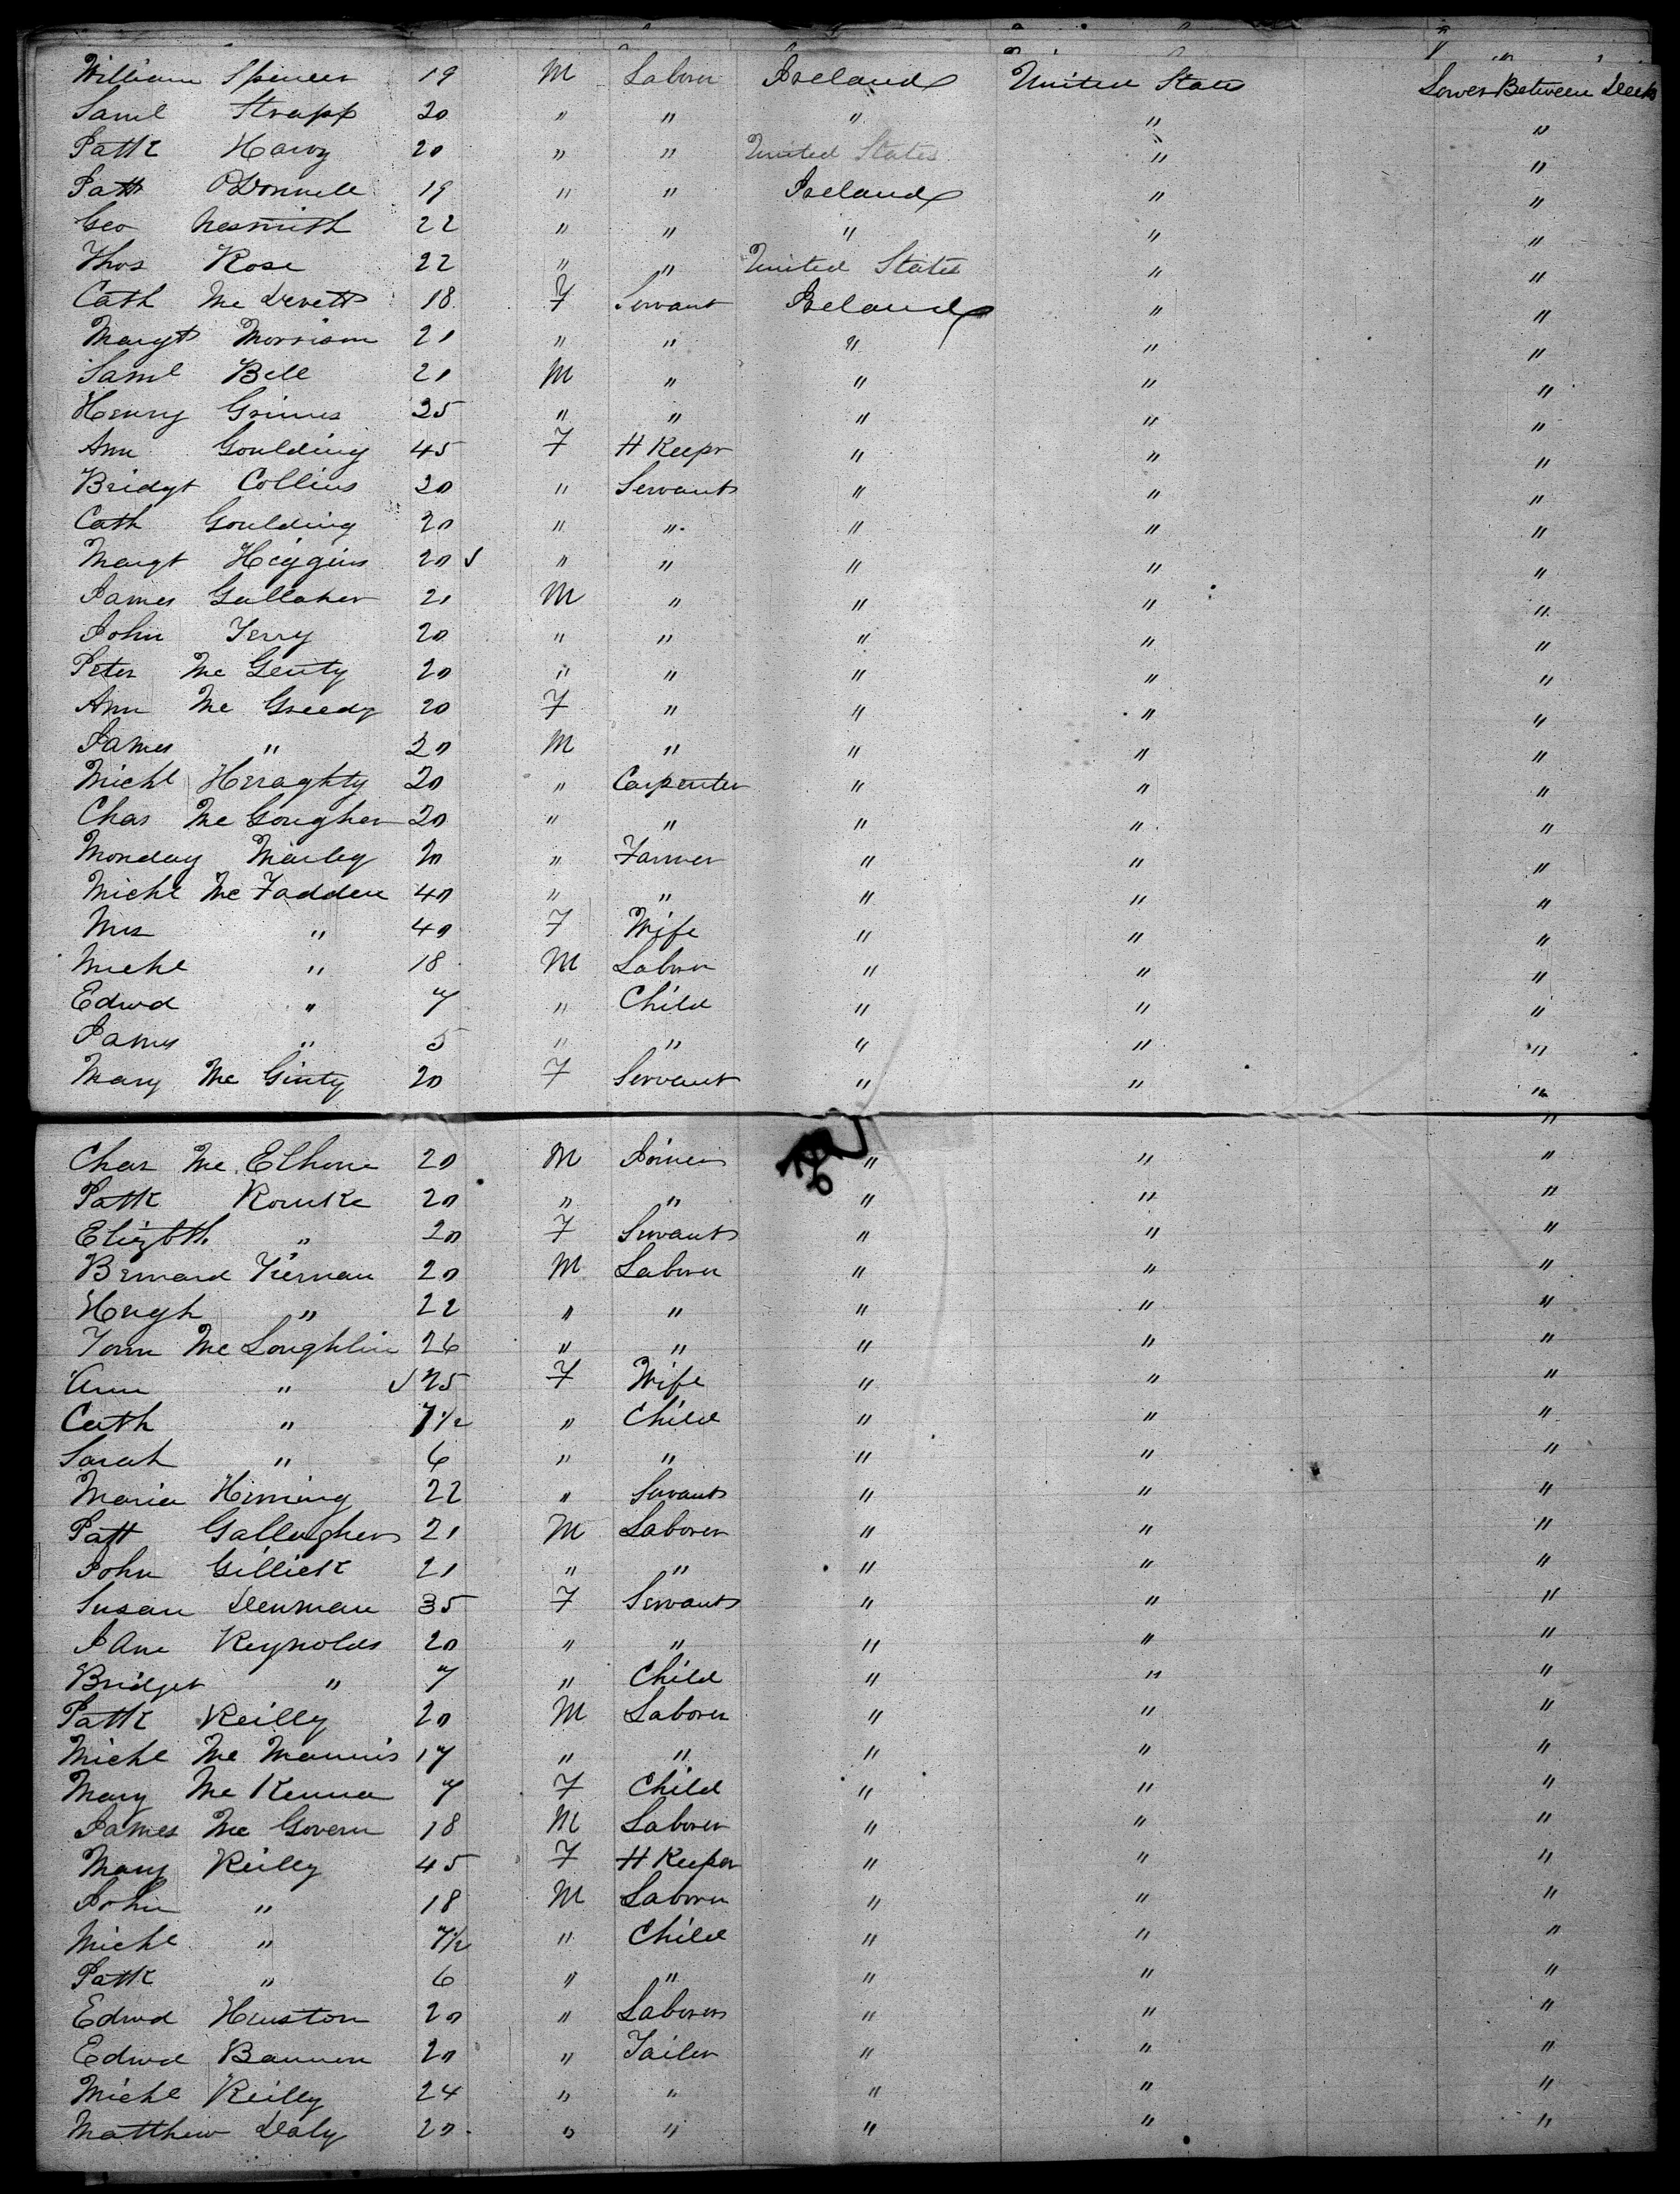 William Spencer 19 M Laborer Ireland United States Lower Between Decks
Saml Strapp 20 " " " " "
Pattk Harvy 20 " " United States " "
Patt O'Donnell 19 " " Ireland " "
Geo Nesmith 22 " " " " "
Thos Rose 22 " " United States " "
Cath Mc Devett 18 F Servant Ireland " "
Margt Morrison 21 " " " " "
Saml Bell 21 M " " " "
Henry Grimes 25 " " " " "
Ann Goulding 45 F H Keepr " " "
Bridgt Collins 20 " Servant " " "
Cath Goulding 20 " " " " "
Margt Higgins 20 " " " " "
James Gallaher 21 M " " " "
John Terry 20 " " " " "
Peter Mc Genty 20 " " " " "
Ann Mc Greedy 20 F " " " "
James " 20 M " " " "
Michl Heraghty 20 " Carpenter " " "
Chas Mc Gougher 20 " " " " "
Monday Marley 20 " Farmer " " "
Michl Mc Fadden 40 " " " " "
Mrs " 40 F Wife " " "
Michl " 18 M Laborer " " "
Edwd " 7 " Child " " "
James " 5 " " " " "
Mary Mc Ginty 20 F Servant " " "
"
Chas Mc Elhone 20 M Joiner " " "
Pattk Rourke 20 " " " " "
Elizbth " 20 F Servant " " "
Bernard Tiernan 20 M Laborer " " "
Hugh " 22 " " " " "
Tom Mc Loughlin 26 " " " " "
Ann " 25 F Wife " " "
Cath " 7½ " Child " " "
Sarah " 6 " " " " "
Maria Heming 22 " Servant " " "
Patt Gallagher 21 M Laborer " " "
John Gillick 21 " " " " "
Susan Denman 35 F Servant " " "
Jane Reynolds 20 " " " " "
Bridget " 7 " Child " " "
Pattk Reilly 20 M Laborer " " "
Michl Mc Mannis 17 " " " " "
Mary Mc Kenna 7 F Child " " "
James Mc Govern 18 M Laborer " " "
Mary Reilly 45 F H Keeper " " "
John " 18 M Laborer " " "
Michl " 7½ " Child " " "
Pattk " 6 " " " " "
Edwd Huston 20 " Laborer " " "
Edwd Bannon 20 " Tailer " " "
Michl Reilly 24 " " " " "
Matthew Daly 20 " " " " "